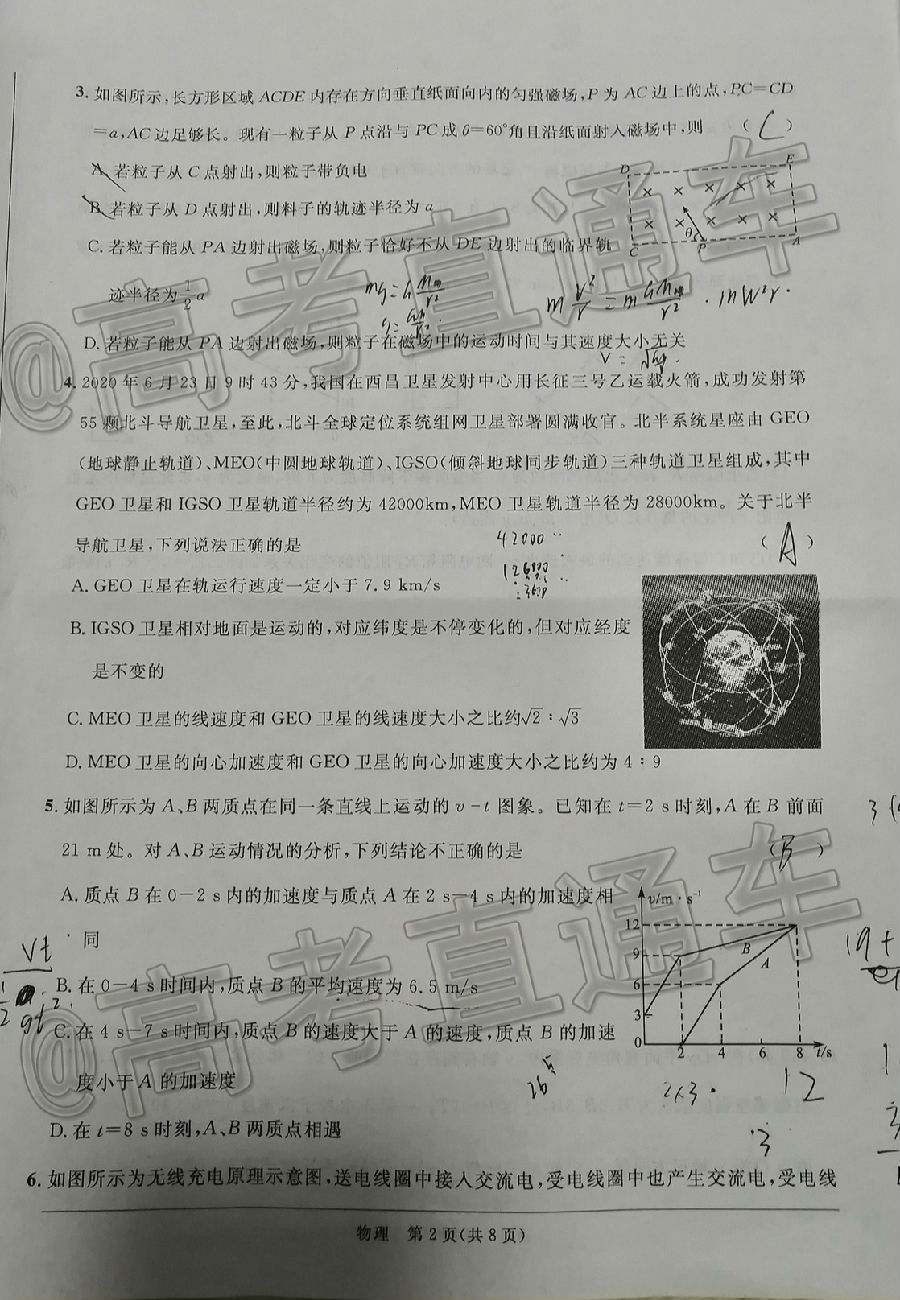 3. 如图所示,长方形区域 ACDE 内存在方向垂直纸面向内的匀强磁场,P 为 AC 边上的点,PC=CD
=a,AC 边足够长。现有一粒子从 P 点沿与 PC 成 θ=60°角且沿纸面射入磁场中,则 ( C )
A. 若粒子从 C 点射出,则粒子带负电
B. 若粒子从 D 点射出,则料子的轨迹半径为 a
C. 若粒子能从 PA 边射出磁场,则粒子恰好不从 DE 边射出的临界轨
迹半径为 1/2 a
D. 若粒子能从 PA 边射出磁场,则粒子在磁场中的运动时间与其速度大小无关
D E
C θ P A
4. 2020 年 6 月 23 日 9 时 43 分,我国在西昌卫星发射中心用长征三号乙运载火箭,成功发射第
55 颗北斗导航卫星,至此,北斗全球定位系统组网卫星部署圆满收官。北半系统星座由 GEO
(地球静止轨道)、MEO(中圆地球轨道)、IGSO(倾斜地球同步轨道)三种轨道卫星组成,其中
GEO 卫星和 IGSO 卫星轨道半径约为 42000km,MEO 卫星轨道半径为 28000km。关于北半
导航卫星,下列说法正确的是 ( A )
42000
A. GEO 卫星在轨运行速度一定小于 7.9 km/s
B. IGSO 卫星相对地面是运动的,对应纬度是不停变化的,但对应经度
是不变的
C. MEO 卫星的线速度和 GEO 卫星的线速度大小之比约√2 : √3
D. MEO 卫星的向心加速度和 GEO 卫星的向心加速度大小之比约为 4 : 9
5. 如图所示为 A、B 两质点在同一条直线上运动的 v-t 图象。已知在 t=2 s 时刻,A 在 B 前面
21 m 处。对 A、B 运动情况的分析,下列结论不正确的是 ( B )
A. 质点 B 在 0-2 s 内的加速度与质点 A 在 2 s-4 s 内的加速度相
同
B. 在 0-4 s 时间内,质点 B 的平均速度为 6.5 m/s
C. 在 4 s-7 s 时间内,质点 B 的速度大于 A 的速度,质点 B 的加速
度小于 A 的加速度
D. 在 t=8 s 时刻,A、B 两质点相遇
v/m·s⁻¹
12
9 B
A
6
3
0 2 4 6 8 t/s
2×3 12
6. 如图所示为无线充电原理示意图,送电线圈中接入交流电,受电线圈中也产生交流电,受电线
物理 第 2 页(共 8 页)
@高考直通车
@高考直通车